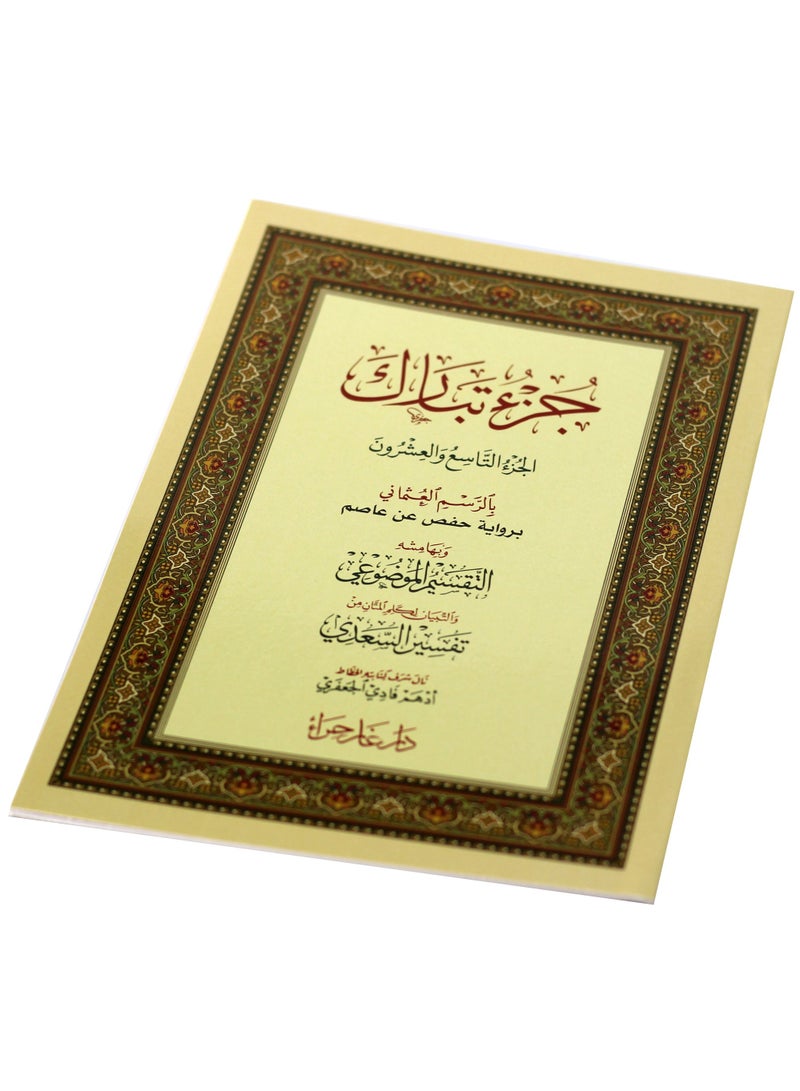 جُزْءُ تَبَارَكَ
الجُزْءُ التَّاسِعُ وَالعِشْرُونَ
بِالرَّسْمِ العُثْمَانِي
برواية حفص عن عاصم
وَبِهَامِشِهِ
التَّقْسِيمُ المَوْضُوعِيّ
وَالتِّبْيَان لِكَلِمِ المَنَّانِ مِنْ
تَفْسِيرِ السَّعْدِيّ
نَالَ شَرَفَ كِتَابَتِهِ الخَطَّاط
أَدْهَم فَادِي الجَعْفَرِي
دَار غَار حِرَاء